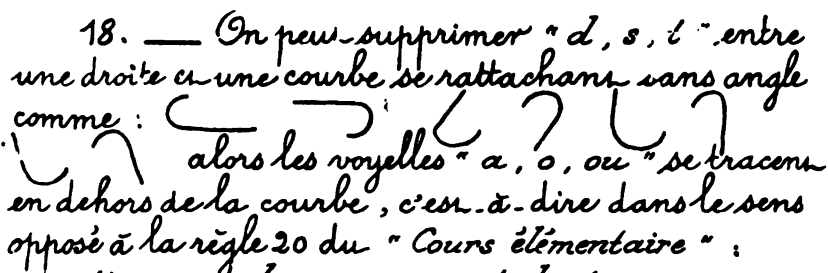 18. — On peut supprimer " d, s, t " entre
une droite et une courbe se rattachant sans angle
comme :
alors les voyelles " a, o, ou " se tracent
en dehors de la courbe, c'est-à-dire dans le sens
opposé à la règle 20 du " Cours élémentaire " :